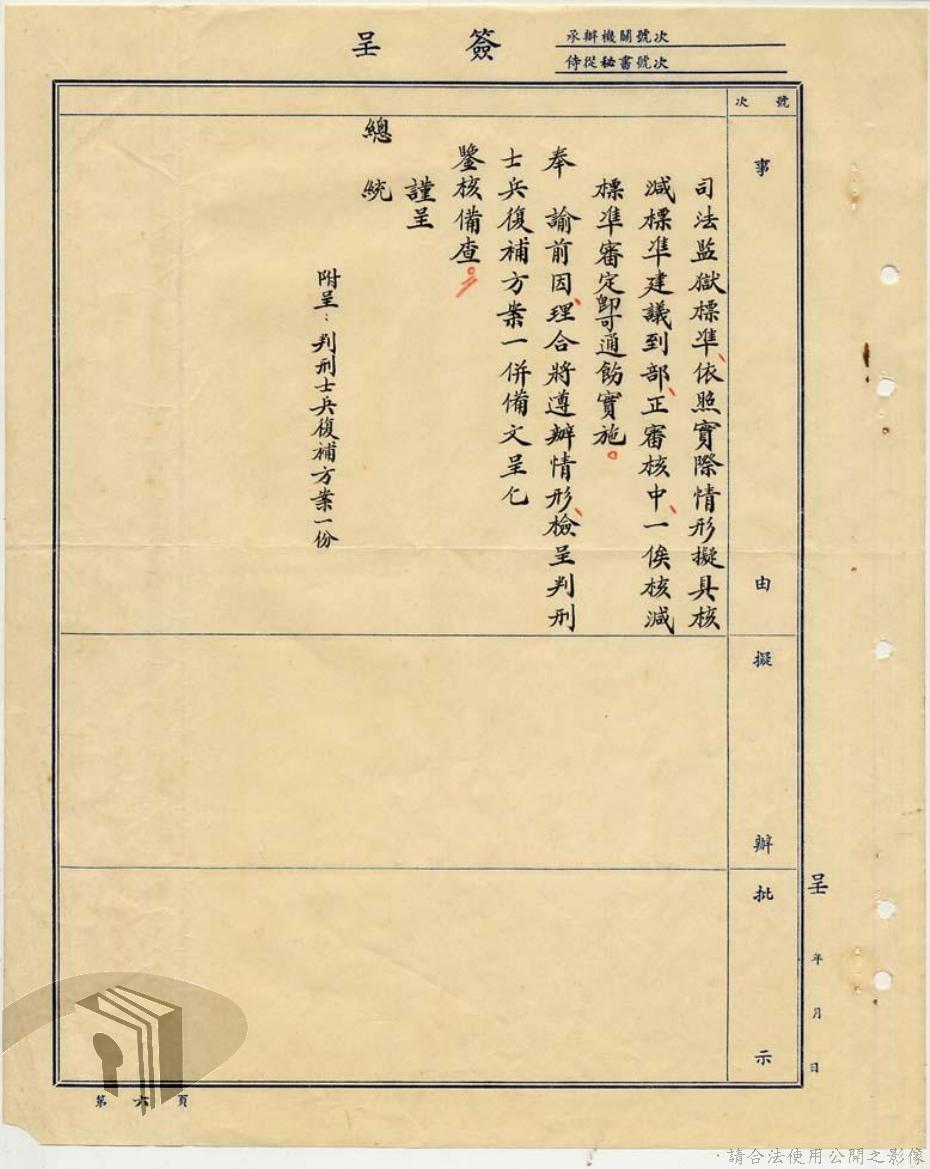 簽呈
承辦機關號次
侍從秘書號次
號次
事由
擬辦
批示
司法監獄標準、依照實際情形擬具核
減標準建議到部、正審核中、一俟核減
標準審定即可通飭實施。
奉 諭前因、理合將遵辦情形、檢呈判刑
士兵復補方案一併備文呈乞
鑒核備查。
謹呈
總統
附呈：判刑士兵復補方案一份
呈 年 月 日
第六頁
·請合法使用公開之影像